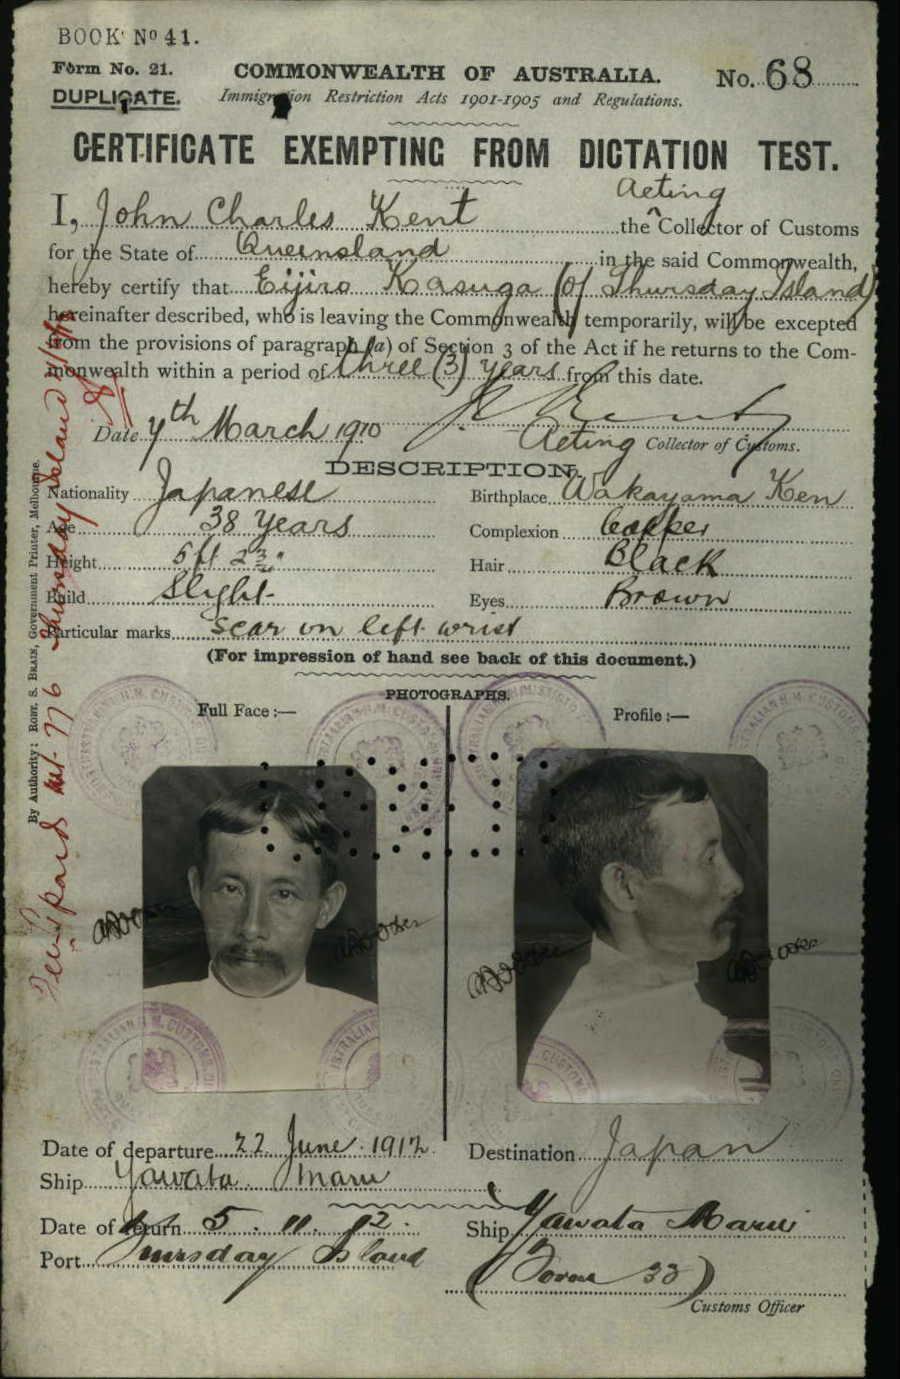 BOOK No 41.
Form No. 21.
COMMONWEALTH OF AUSTRALIA.
No. 68
DUPLICATE.
Immigration Restriction Acts 1901-1905 and Regulations.
CERTIFICATE EXEMPTING FROM DICTATION TEST.
Acting
I, John Charles Kent the Collector of Customs
for the State of Queensland in the said Commonwealth,
hereby certify that Eijiro Kasuga (of Thursday Island)
hereinafter described, who is leaving the Commonwealth temporarily, will be excepted
from the provisions of paragraph (a) of Section 3 of the Act if he returns to the Com-
monwealth within a period of three (3) years from this date.
Date 7th March 1910
Acting Collector of Customs.
DESCRIPTION.
Nationality Japanese Birthplace Wakayama Ken
Age 38 years Complexion Copper
Height 5ft 2¾" Hair Black
Build Slight Eyes Brown
Particular marks scar on left wrist
(For impression of hand see back of this document.)
PHOTOGRAPHS.
Full Face :— Profile :—
Date of departure 22 June 1912 Destination Japan
Ship Yawata Maru
Date of return 5. 11. 12. Ship Yawata Maru
Port Thursday Island (Form 32)
Customs Officer
By Authority: ROBT. S. BRAIN, Government Printer, Melbourne.
Thursday Island